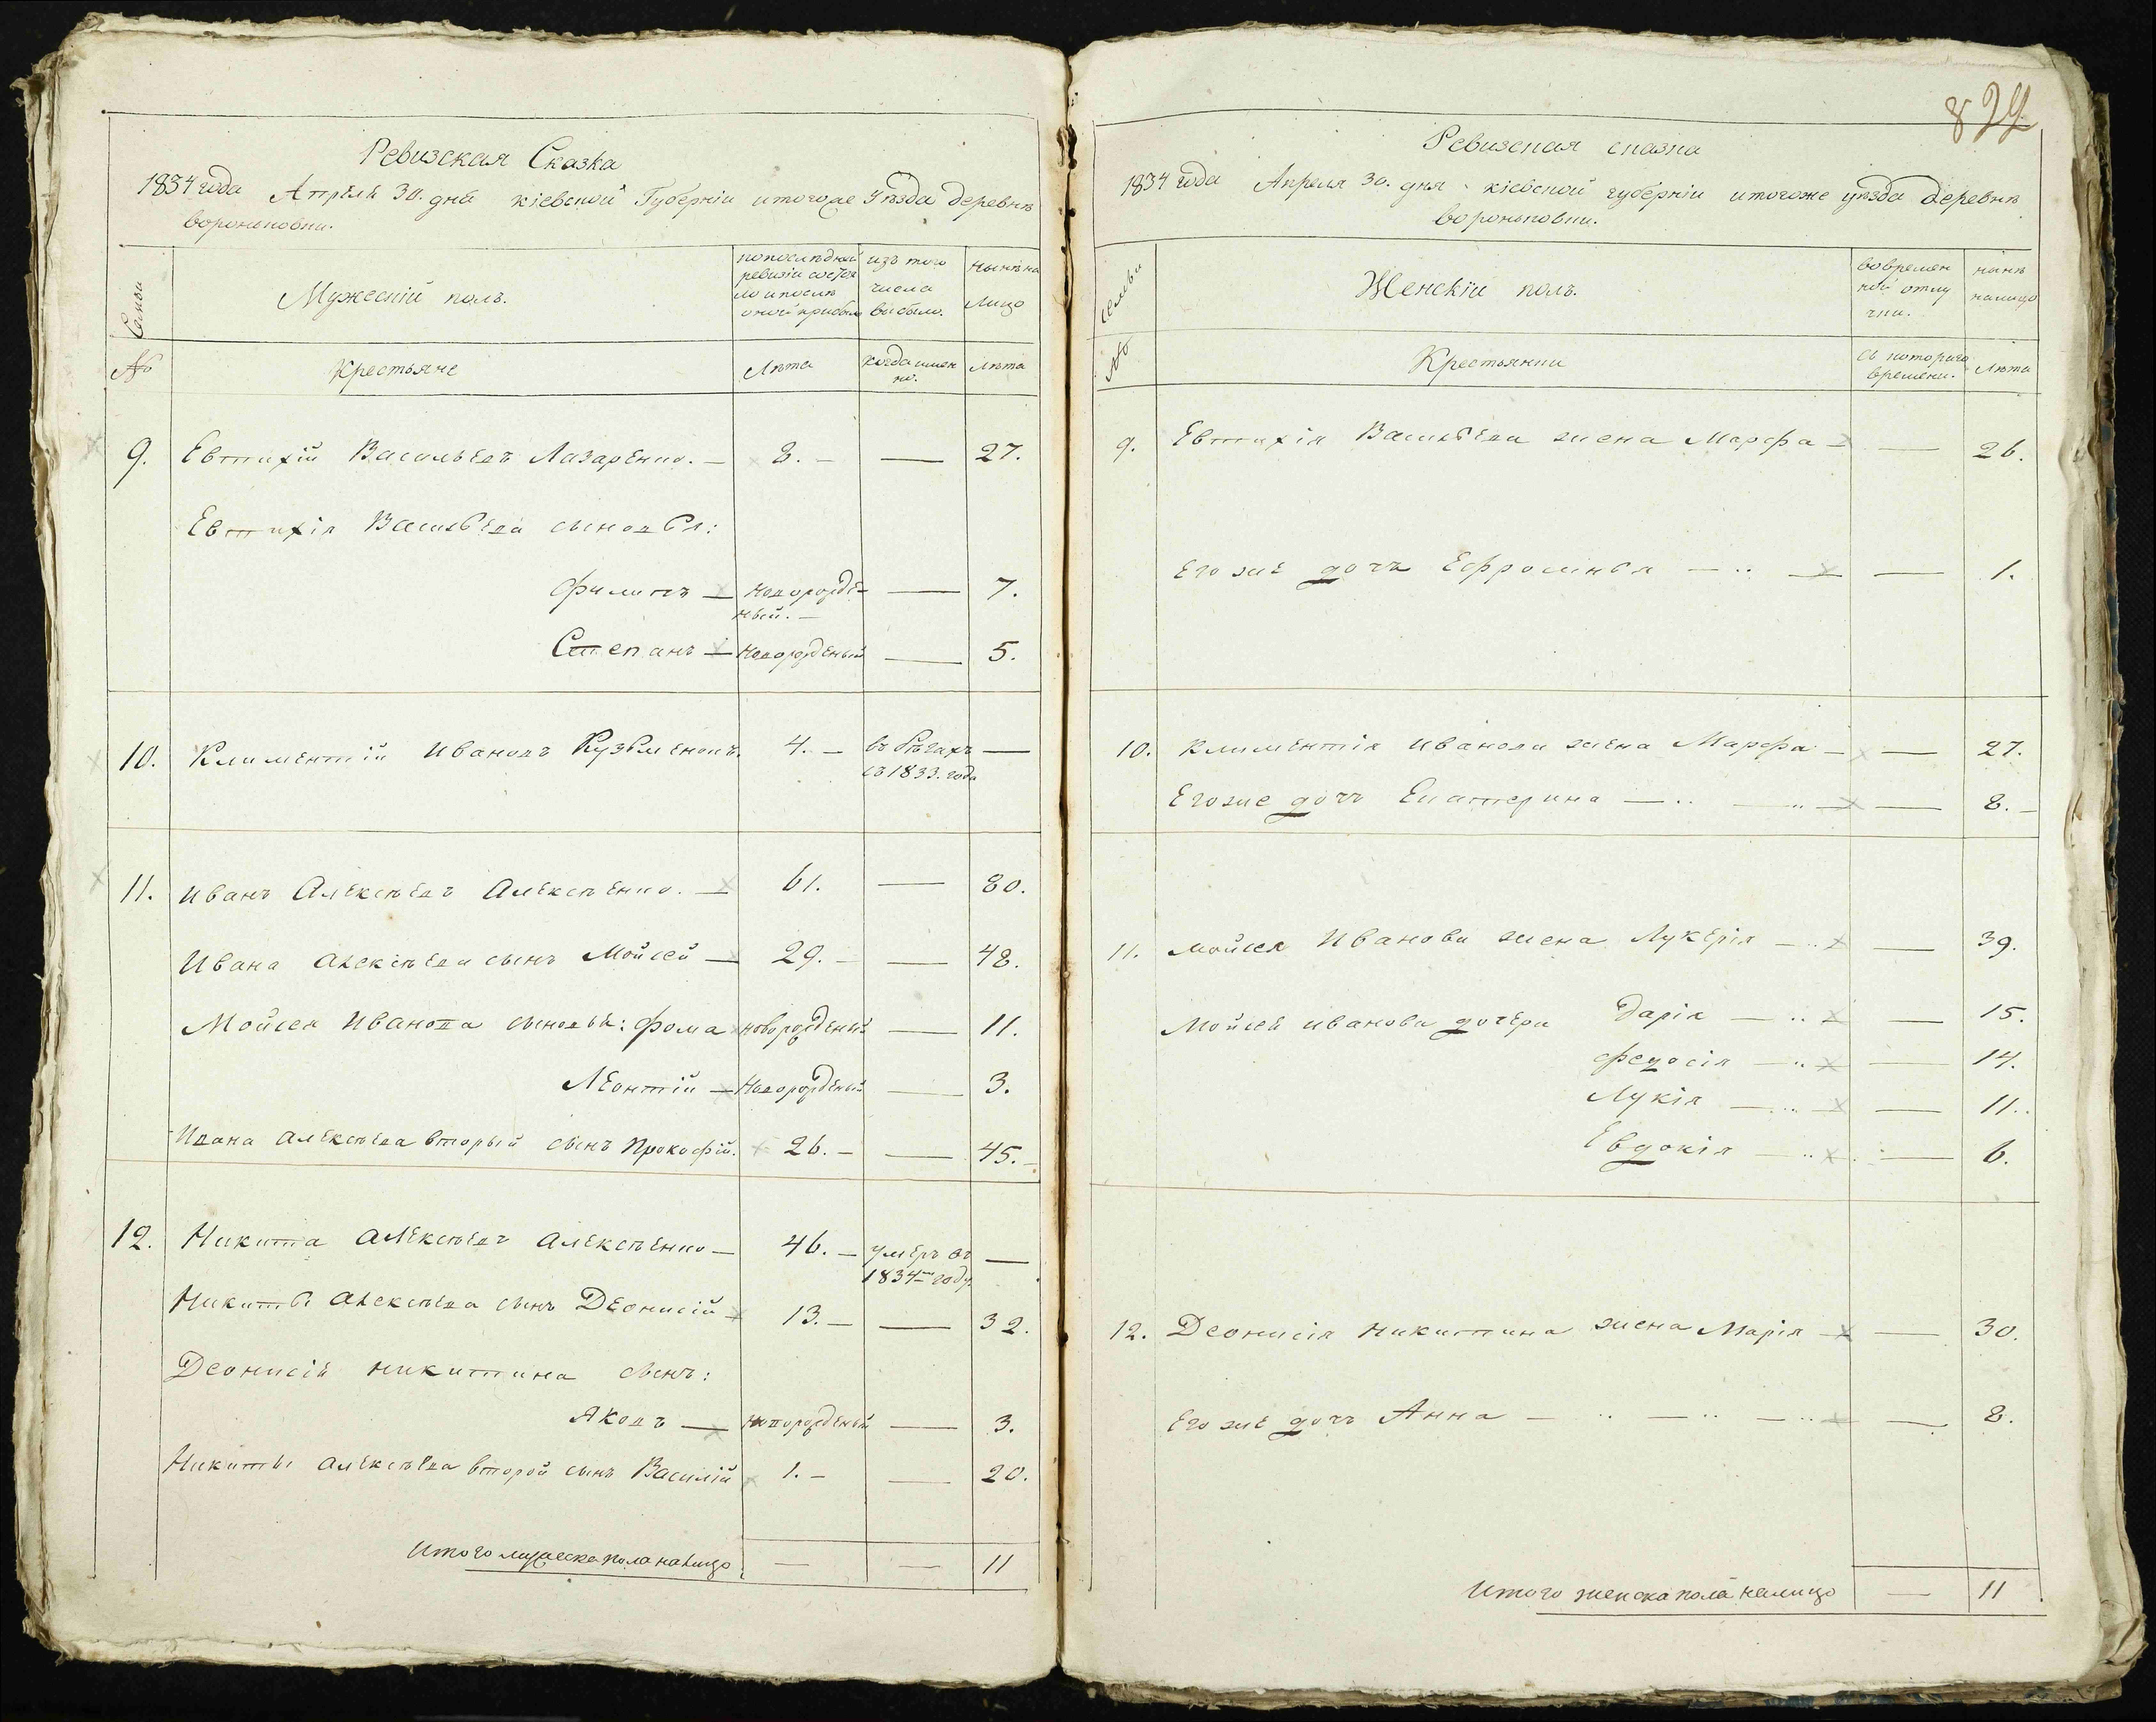 Ревизская Сказка
1834 года Апреля 30. дня кіевской Губерніи итогоже Уѣзда деревнѣ
вороньковки.
Семьи
Мужескій полъ.
попослѣдней
ревизіи состоя
ло ипослѣ
оной прибыло
изъ того
числа
выбыло.
нынѣ на
лицо
№
Крестьяне
Лѣта
когда имен
но.
Лѣта
9. Евтихій Васильевъ Лазаренко. — 8. — — 27.
Евтихія Васильева сыновья:
Филипъ — новорожде-
ный. — — 7.
Степанъ — новорожденый — 5.
10. Климентій Ивановъ Кузьменокъ. 4. — въ бѣгахъ —
съ 1833. года
11. Иванъ Алексѣевъ Алексѣенко. — 61. — 80.
Ивана Алексѣева сынъ Мойсей — 29. — — 48.
Мойсея Иванова сыновья: Фома новорожденый — 11.
Леонтій — новорожденый — 3.
Ивана Алексѣева вторый сынъ Прокофій. 26. — — 45. —
12. Никита Алексѣевъ Алексѣенко — 46. — умеръ въ —
1834м году.
Никиты Алексѣева сынъ Деонисій — 13. — — 32.
Деонисія Никитина сынъ:
Яковъ — новорожденый — 3.
Никиты Алексѣева второй сынъ Василій 1. — — 20.
Итого мужеска пола налицо — — 11
829
Ревизская сказка
1834 года Апреля 30. дня кіевской губерніи итогоже уѣзда деревнѣ
вороньковки.
семьи
Женскій полъ.
вовремен
ной отлу
чки.
нынѣ
налицо
№
Крестьянки
съ которого
времени.
Лѣта
9. Евтихія Васильева жена Марфа — — 26.
Егоже дочь Ефросинья — .. — — 1.
10. Климентія Иванова жена Марфа — — 27.
Егоже дочь Екатерина — .. — .. — — 8. —
11. Мойсея Иванова жена Лукерія — .. — 39.
Мойсея Иванова дочери Дарія — .. — 15.
Федосія — .. — — 14.
Лукія — .. — — 11.
Евдокія — .. — — 6.
12. Деонисія Никитина жена Марія — — 30.
Егоже дочь Анна — .. — .. — .. — — 8.
Итого женска пола налицо — 11